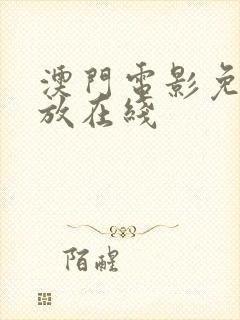 澳門電影免
放在綫
陌醒